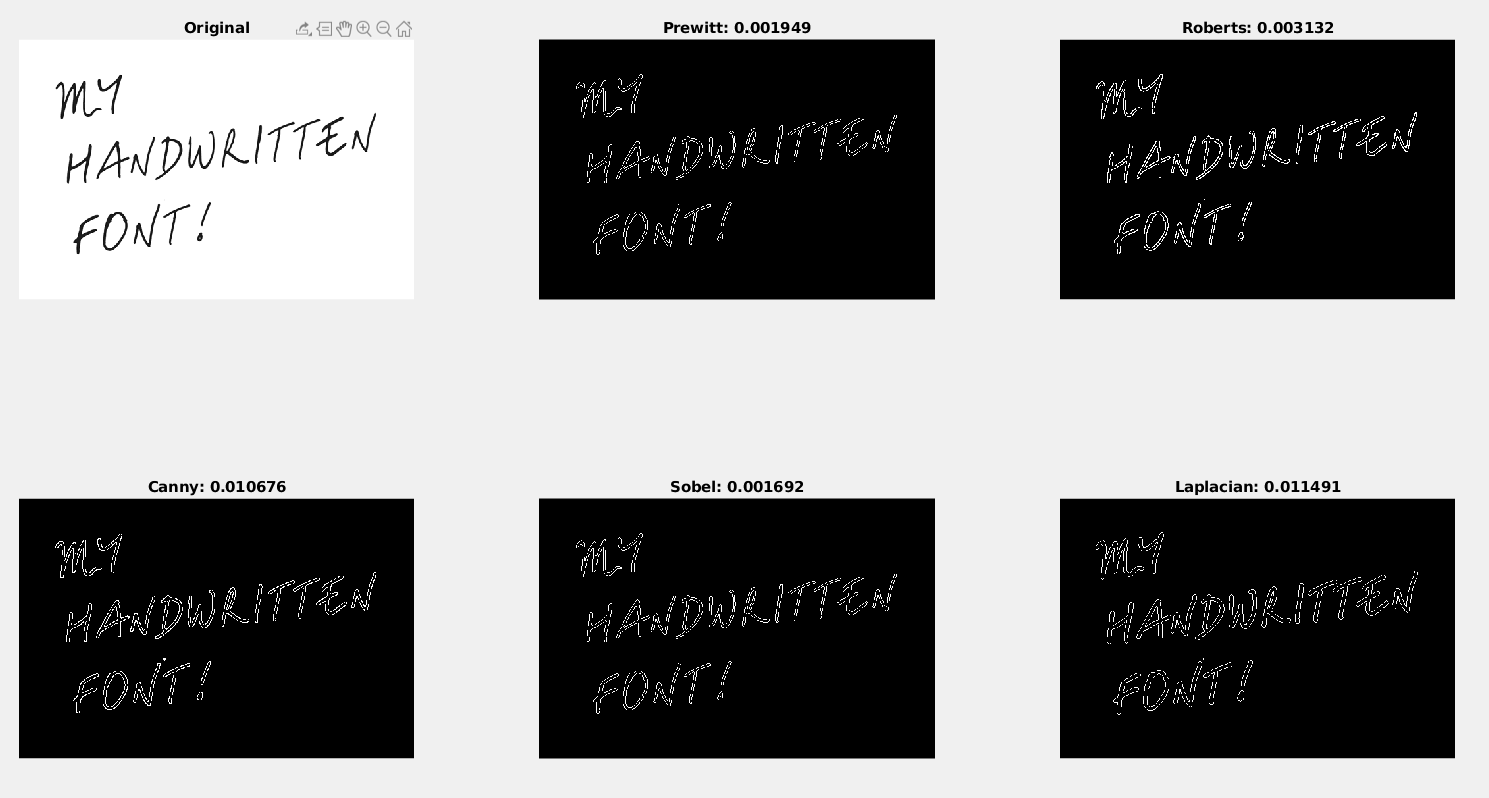 Original
MY
HANDWRITTEN
FONT!
Prewitt: 0.001949
MY
HANDWRITTEN
FONT!
Roberts: 0.003132
MY
HANDWRITTEN
FONT!
Canny: 0.010676
MY
HANDWRITTEN
FONT!
Sobel: 0.001692
MY
HANDWRITTEN
FONT!
Laplacian: 0.011491
MY
HANDWRITTEN
FONT!